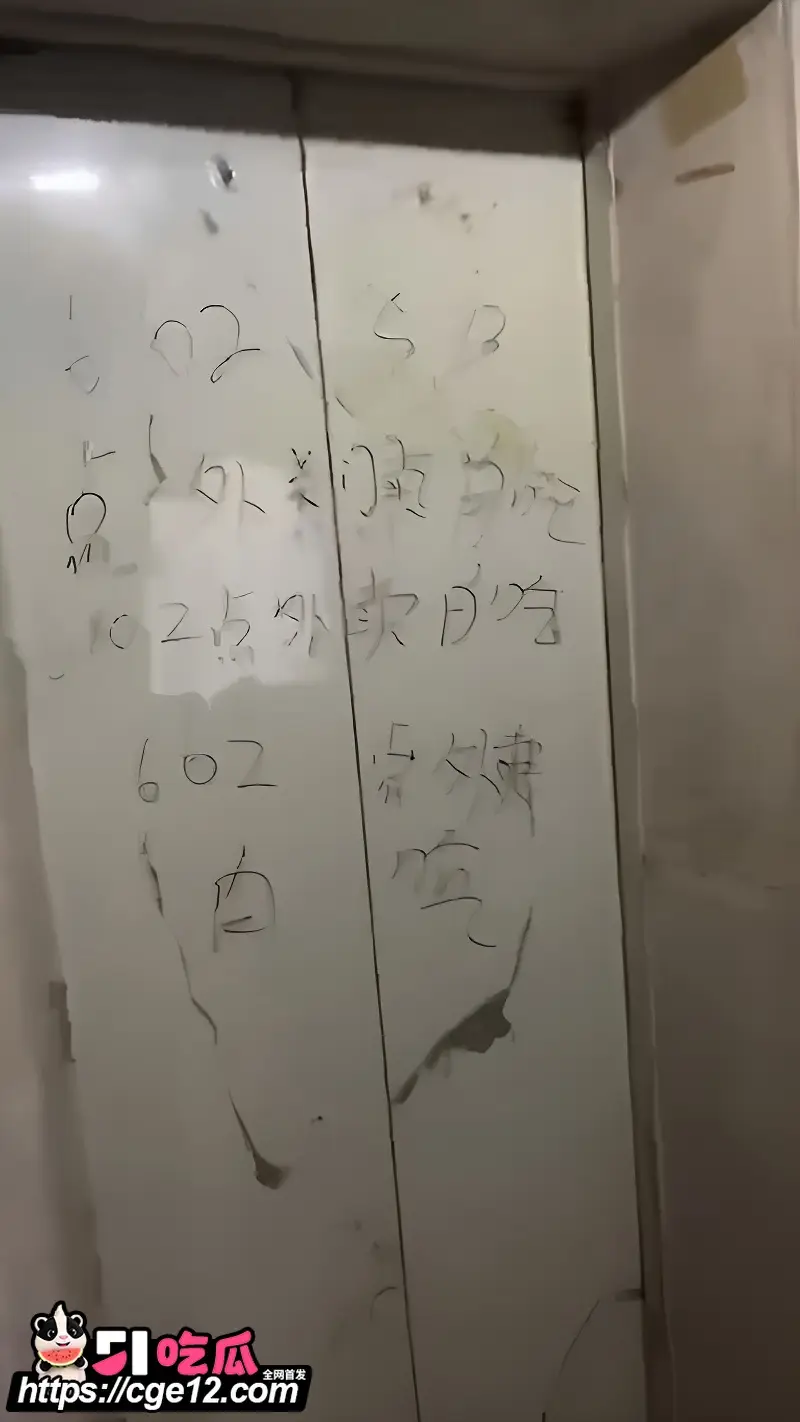 602、SB
点外卖 白吃
602点外卖白吃
602 点外卖
白 吃
51吃瓜
全网首发
https://cge12.com